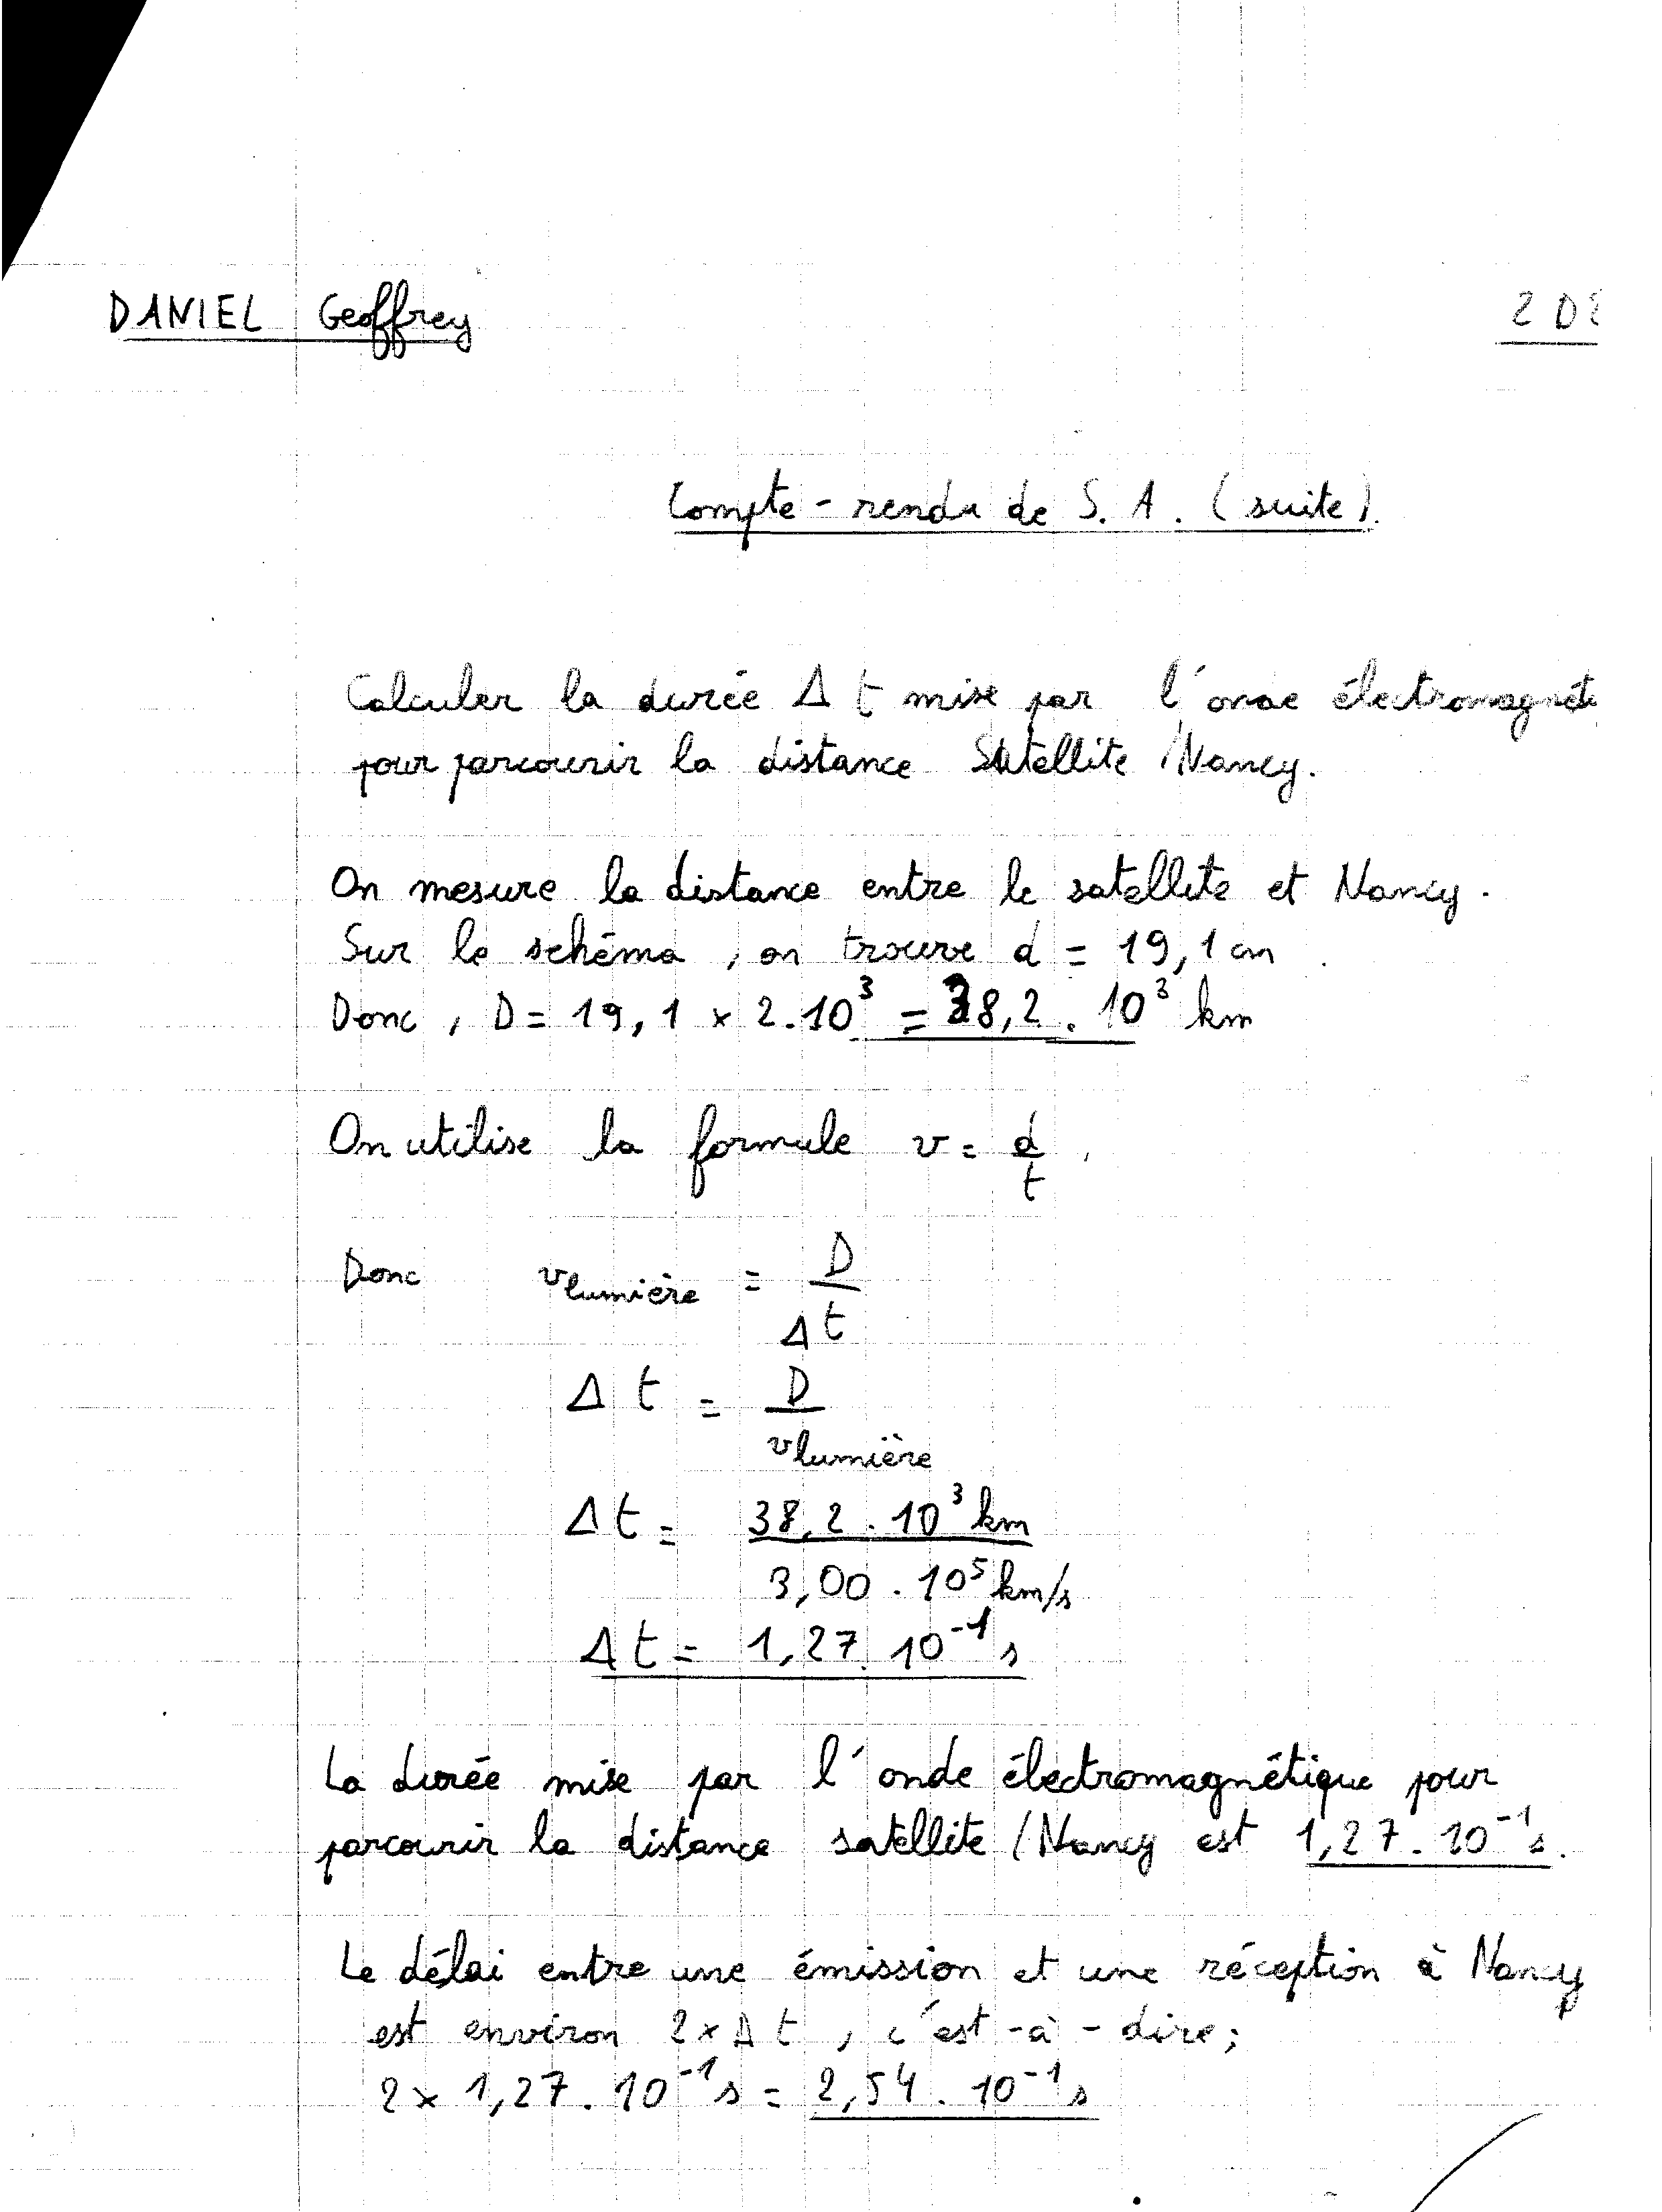 DANIEL Geoffrey
2 D
Compte-rendu de S. A. (suite).
Calculer la durée Δ t mise par l'onde électromagnéti
pour parcourir la distance Satellite / Nancy.
On mesure la distance entre le satellite et Nancy.
Sur le schéma, on trouve d = 19,1 cm.
Donc, D = 19,1 x 2.10³ = 38,2 . 10³ km
On utilise la formule v = d/t,
Donc v lumière = D/Δt
Δ t = D/v lumière
Δ t = 38,2 . 10³ km / 3,00 . 10⁵ km/s
Δ t = 1,27. 10⁻¹ s
La durée mise par l'onde électromagnétique pour
parcourir la distance satellite / Nancy est 1,27. 10⁻¹ s.
Le délai entre une émission et une réception à Nancy
est environ 2 x Δ t, c'est-à-dire;
2 x 1,27. 10⁻¹ s = 2,54. 10⁻¹ s